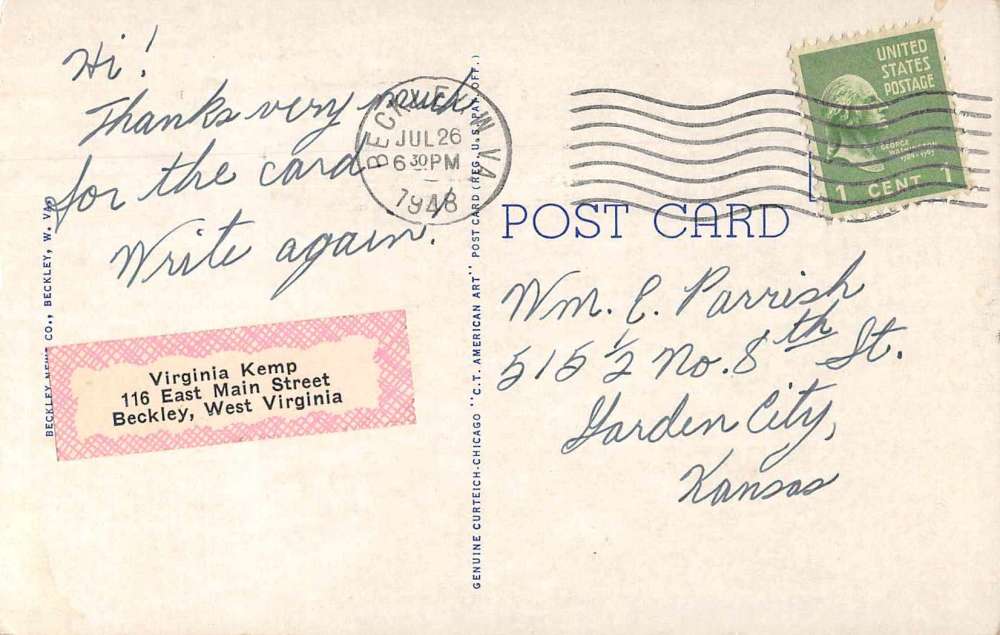 Hi!
Thanks very much
for the card
Write again.
BECKLEY, W. VA.
JUL 26
6 30 PM
1948
UNITED
STATES
POSTAGE
GEORGE
WASHINGTON
1789-1797
1 CENT 1
POST CARD
Wm. E. Parrish
515 1/2 No. 8th St.
Garden City,
Kansas
Virginia Kemp
116 East Main Street
Beckley, West Virginia
BECKLEY NEWS CO., BECKLEY, W. VA.
GENUINE CURTEICH-CHICAGO "C.T. AMERICAN ART" POST CARD (REG. U.S. PAT. OFF.)